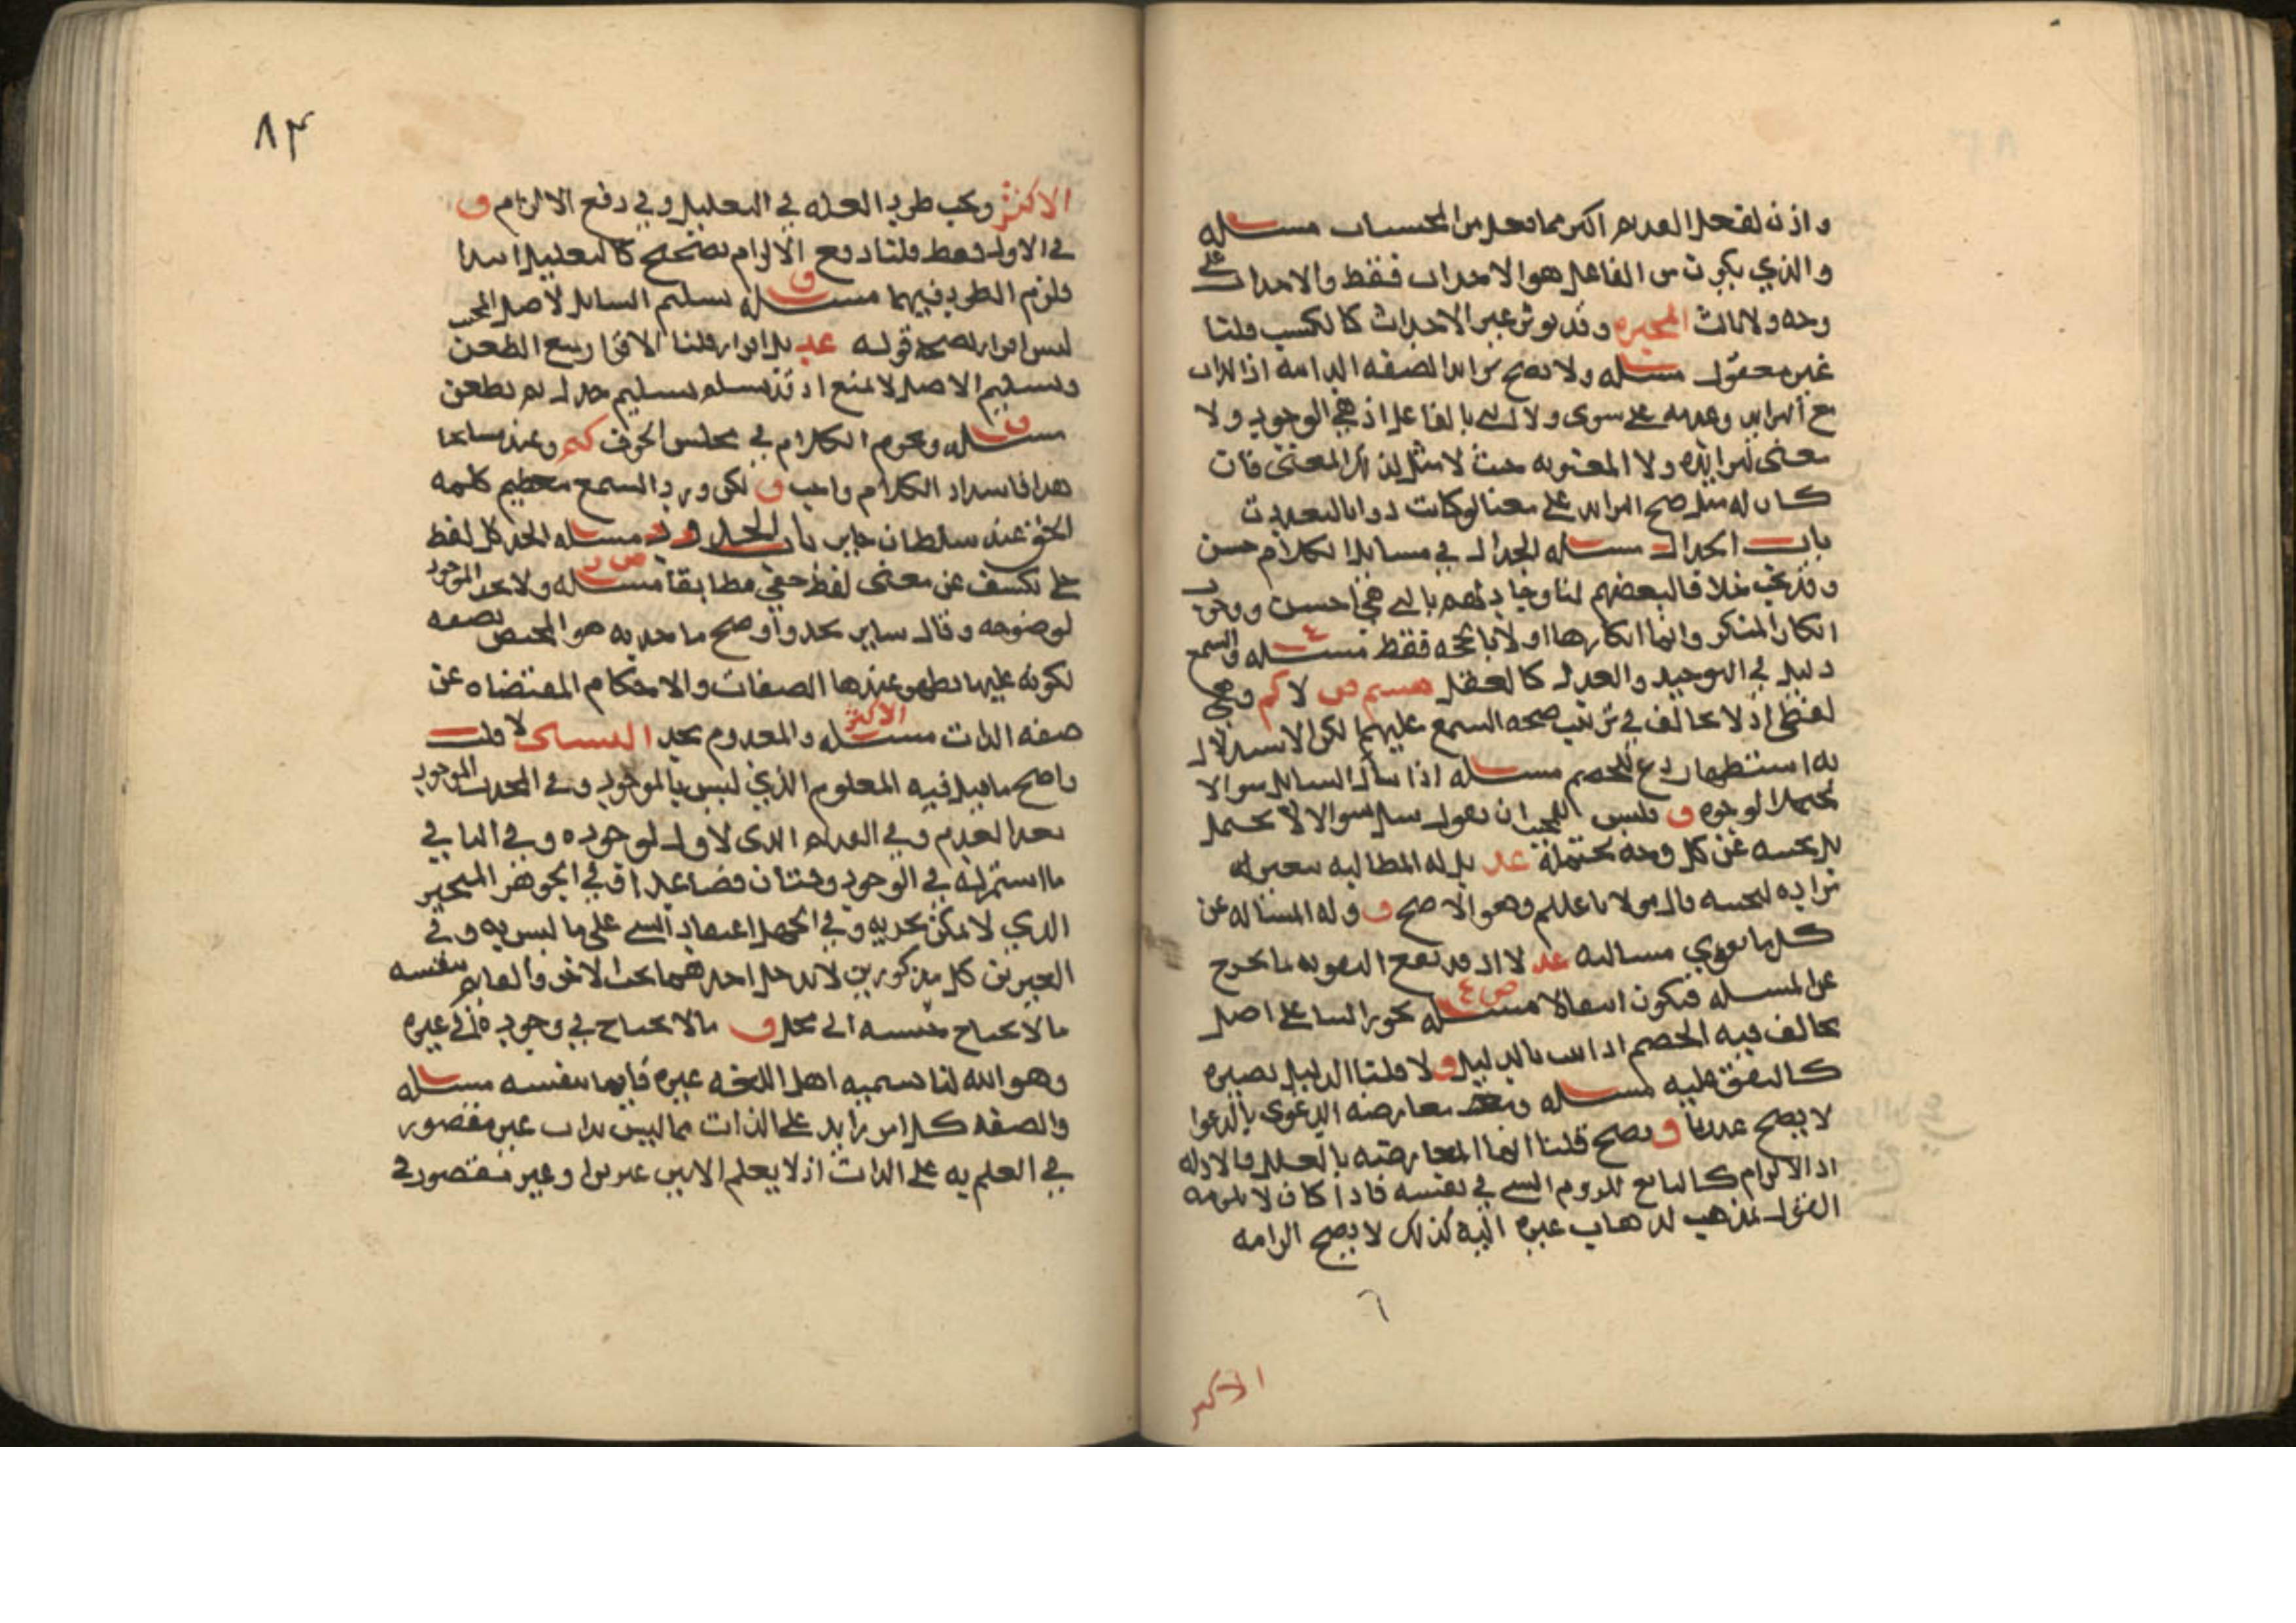 واذ نه لفعل القديم اكثر مما فعل من المحسنات مسئله
والذي يكون من الفاعل هو الاحداث فقط والاحداث على
وجه ولا ثالث المجبره وقد يوثر غير الاحداث كالكسب قلنا
غير معقول مسئله ولا يصح تزايد الصفه الذاتيه اذ الذات
مع التزايد وعدمه على سوى ولا التي بالفاعل اذ هي الوجود ولا
معنى لتزايده ولا المعنويه حيث لا مثل لذلك المعنى فان
كان له مثل صح التزايد على معنا لو كانت ذواتا لتعددت
باب الجدال مسئله الجدال في مسايل الكلام حسن
وقد يجب خلافا لبعضهم لنا وجادلهم بالتي هي احسن ووجوب
انكار المنكر وانما انكارها اولا بالحجه فقط مسئله والسمع
دليل في التوحيد والعدل كالعقل هسم ص لا كم وهي
لفظي اذ لا مخالف في ترتيب صحه السمع عليهما لكن الاستدلال
به استظهار دع للخصم مسئله اذا سال السايل سوالا
يحتمل الوجوه ق فليس للمجيب ان يقول سل سوالا لا يحتمل
بل يجيبه عن كل وجه يحتمله عد بل له المطالبه بتعيين ما
يريده ليجيبه قال مولانا عليلم وهو الاصح ق وله المسئاله عن
كل ما يقوي مسالته عد لا اذ قد يقع التقويه بما يخرج
عن المسئله فيكون انتقالا مسئله يجوز البنا على اصل
يخالف فيه الخصم اذا اثبت بالدليل ق لا قلنا الدليل يصيره
كالمتفق عليه مسئله وبعض معارضه الدعوى بالدعوا
لا يصح عدنا ق يصح قلنا انما المعارضه بالعلل والادله
اذ الالزام كالتابع للزوم الشي في نفسه فاذا كان لا يلزمه
القول بمذهب لذهاب غيره اليه كذلك لا يصح الزامه
٦
الاكثر
٨٣
الاكثر ويجب طرد العله في التعليل وفي دفع الالزام ق
في الاول فقط قلنا دفع الالزام تصحيح كالتعليل ابتدا
فلزم الطرد فيهما مسئله تسليم السايل لاصل المجيب
ليس اقرارا بصحه قوله عد بل اقرار قلنا الاقرار يمنع الطعن
وتسليم الاصل لا يمنع اذ قد يسلم تسليم جدل ثم يطعن
مسئله ويحرم الكلام في مجلس الخوف كم وعند مشايخنا
هذا فاسد اذ الكلام واجب ق لكن ورد السمع بعظيم كلمه
الحق عند سلطان جاير باب الحدود مسئله الحد كل لفظ
جلي يكشف عن معنى لفظ خفي مطابقا مسئله ولا يحد الموجود
لوضوحه وقال ساير يحد واوضح ما حد به هو المختص بصفه
لكونه عليها تظهر عندها الصفات والاحكام المقتضاه عن
صفه الذات مسئله الاكثر والمعدوم يحد البستى لا قلت
واصح ما قيل فيه المعلوم الذي ليس بالموجود وفي المحدث الموجود
بعد العدم وفي القديم الذي لا اول لوجوده وفي الباقي
ما استمر له في الوجود وقتان فصاعدا ق في الجوهر المتحيز
الذي لا يمكن تجزيه وفي الجهل اعتقاد الشي على ما ليس به وفي
الغيرين كل مذكورين لا يدخل احدهما تحت الاخر والقايم بنفسه
ما لا يحتاج بنفسه الى محل ق ما لا يحتاج في وجوده الى غيره
وهو الله لنا تسميه اهل اللغه غيره قايما بنفسه مسئله
والصفه كل امر زايد على الذات مما ليس بذات غير مقصور
في العلم به على الذات اذ لا يعلم الابين غير بوا وغير مقصور في